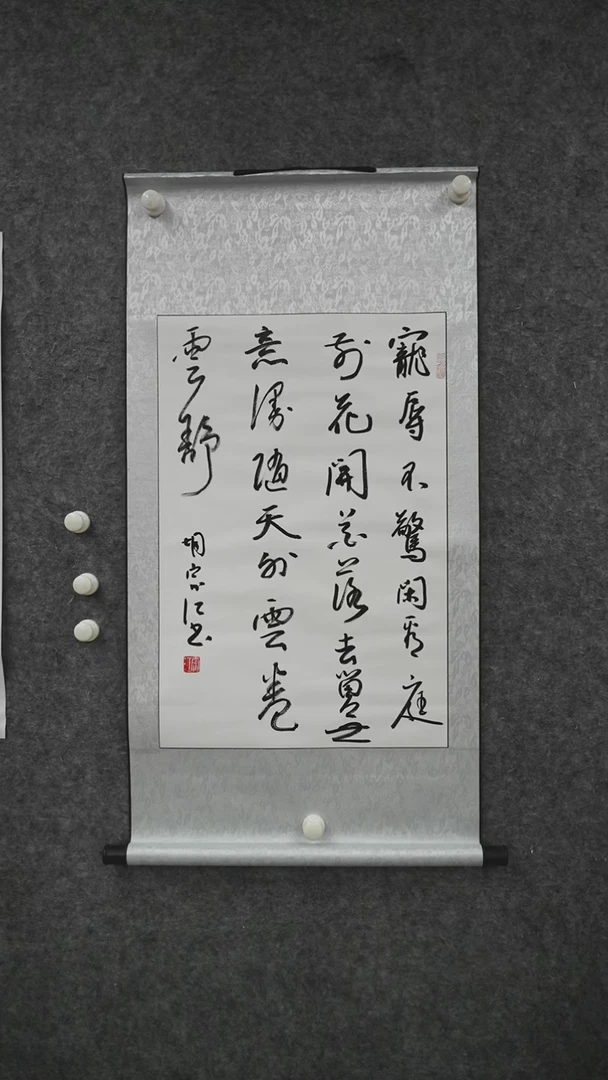 寵辱不驚閑看庭
前花開花落去留無
意漫隨天外雲卷
雲舒
胡宗江书